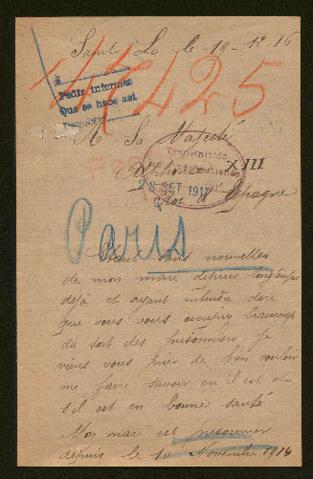 Saint Lo le 19-12-16
Pedir informes
Que se hace así
117425
A Sa Majesté
Alphonse XIII
Transmitido
28 SET 1917
Roi d'Espagne
Paris
Etant sans nouvelles
de mon mari depuis longtemps
déjà et ayant entendu dire
que vous vous occupez beaucoup
du sort des prisonniers je
viens vous prier de bien vouloir
me faire savoir où il est et
s'il est en bonne santé
Mon mari est prisonnier
depuis le Novembre 1914